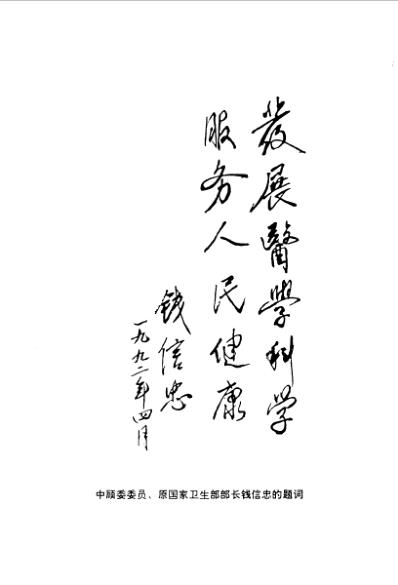 發展醫學科学
服务人民健康
钱信忠
一九九二年四月
中顾委委员、原国家卫生部部长钱信忠的题词